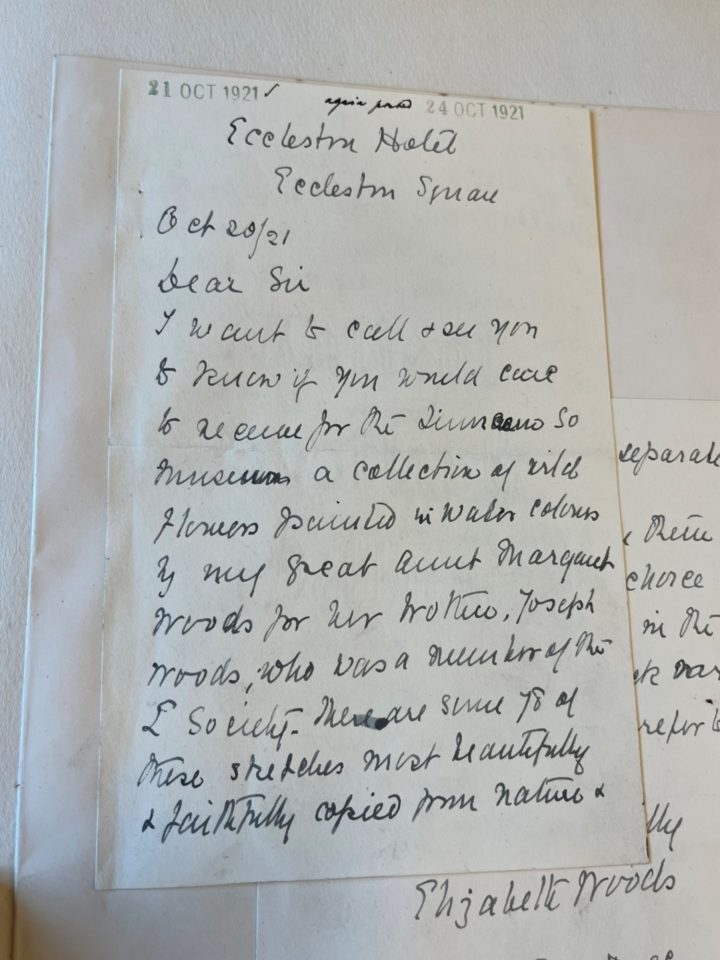 21 OCT 1921 24 OCT 1921
Eccleston Hotel
Eccleston Square
Oct 20/21
Dear Sir
I want to call & see you
to know if you would care
to receive for the Linnaean So
museum a collection of wild
flowers painted in water colours
by my great aunt Margaret
Woods for her brother, Joseph
Woods, who was a member of the
L Society. There are some 78 of
these sketches most beautifully
& faithfully copied from nature &
separate
them
choice
in the
Elizabeth Woods